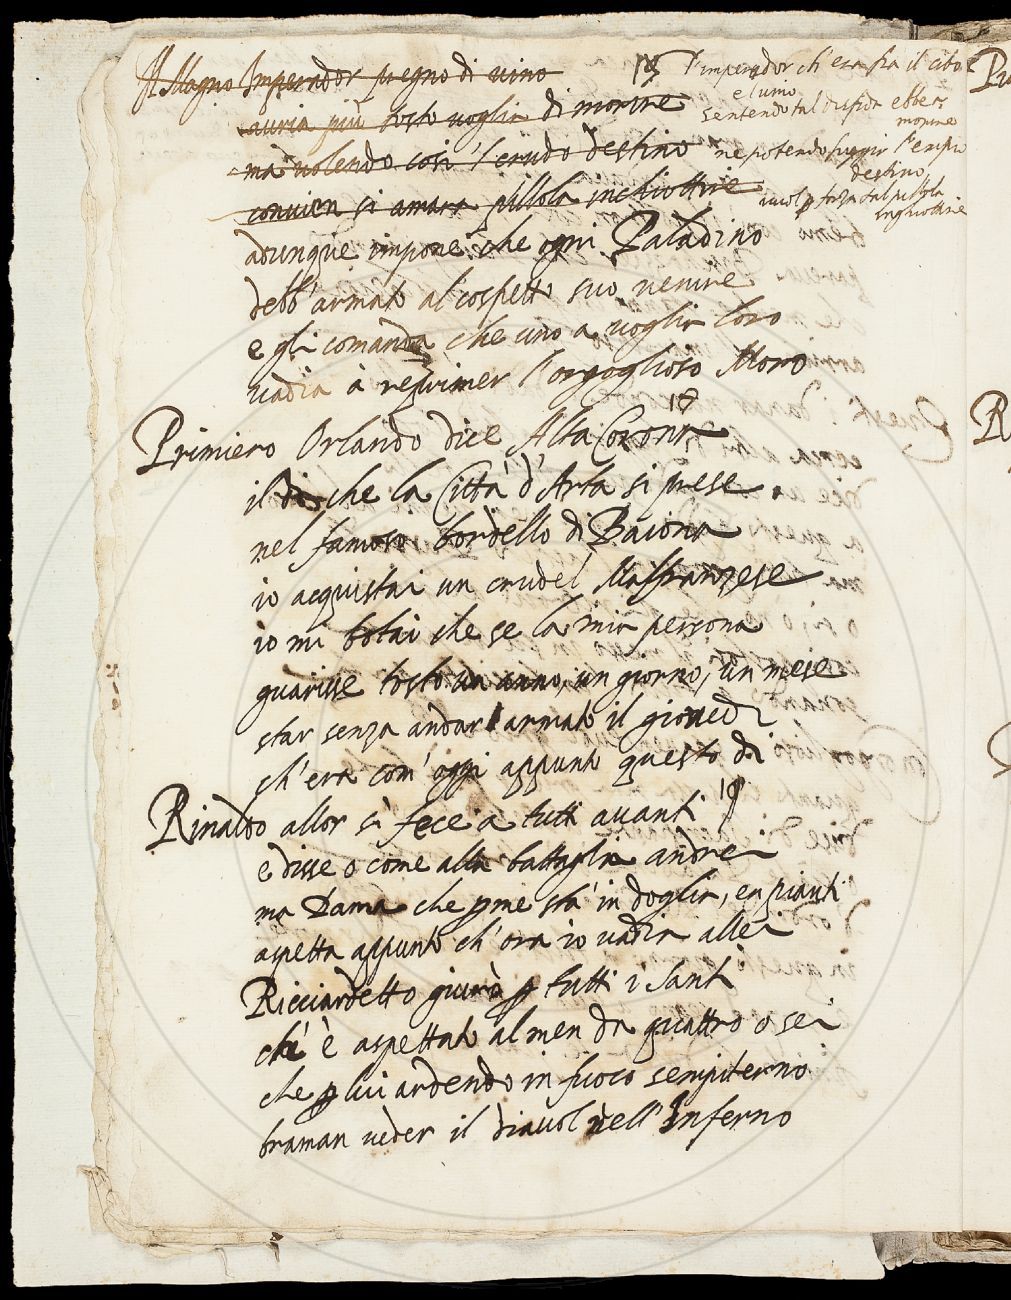 Il Magno Imperador pregno di vino
auria più tosto voglia di morire
ma volendo così l'crudo destino
convien si amara pillola inchiottire
l'imperador ch'era fra il cibo
e l'umo
sentendo tal disfida ebbe
morire
ne potendo fuggir l'empio
destino
tal pillola
inghiottire
adunque impone che ogni Paladino
debb'armato al cospetto suo venire
e gli comanda che uno a voglia loro
vadia à reprimer l'orgoglioso Moro
18
Primiero Orlando dice Alta Corona
il dì che la Città d'Arla si prese
nel famoso bordello di Baiona
io acquistai un crudel Malfranzese
io mi botai che se la mia persona
guarisse tosto un anno, un giorno, un mese
star senza andar armato il giovedì
ch'era com'oggi appunto questo dì
19
Rinaldo allor si fece a tutti avanti
e disse o come alla battaglia andrei
ma Dama che p me stà in doglia, en pianti
aspetta appunto ch'ora io vadia allei
Ricciardetto giurò p tutti i Santi
ch'è aspettato almen da quattro o sei
che p lui ardendo in fuoco sempiterno
braman veder il diavol dell'Inferno